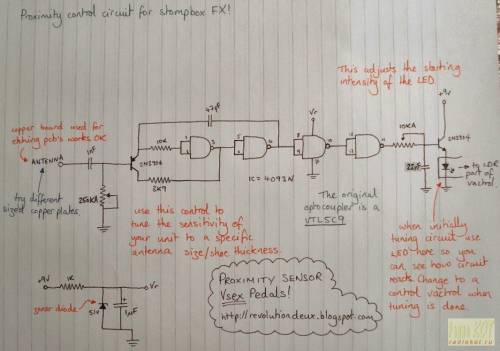 Proximity control circuit for stompbox FX!
This adjusts the starting
intensity of the LED.
+9v
47pF
Vr
copper board used for
etching pcb's works OK
10K
10KA
2N3904
1nF
ANTENNA
2N3904
3K9
IC = 4093N
22nF
to LDR
part of
vactrol
try different
sized copper plates.
250KA
The original
optocoupler is a
VTL5C9
use this control to
tune the sensitivity of
your unit to a specific
antenna size/shoe thickness.
when initially
tuning circuit use
LED here so you
can see how circuit
reacts. Change to a
control vactrol when
tuning is done.
+9v
1K
Vr
zener diode
5V1
1µF
PROXIMITY SENSOR
Vsex Pedals!
http://revolutiondeux.blogspot.com
radiokot.ru